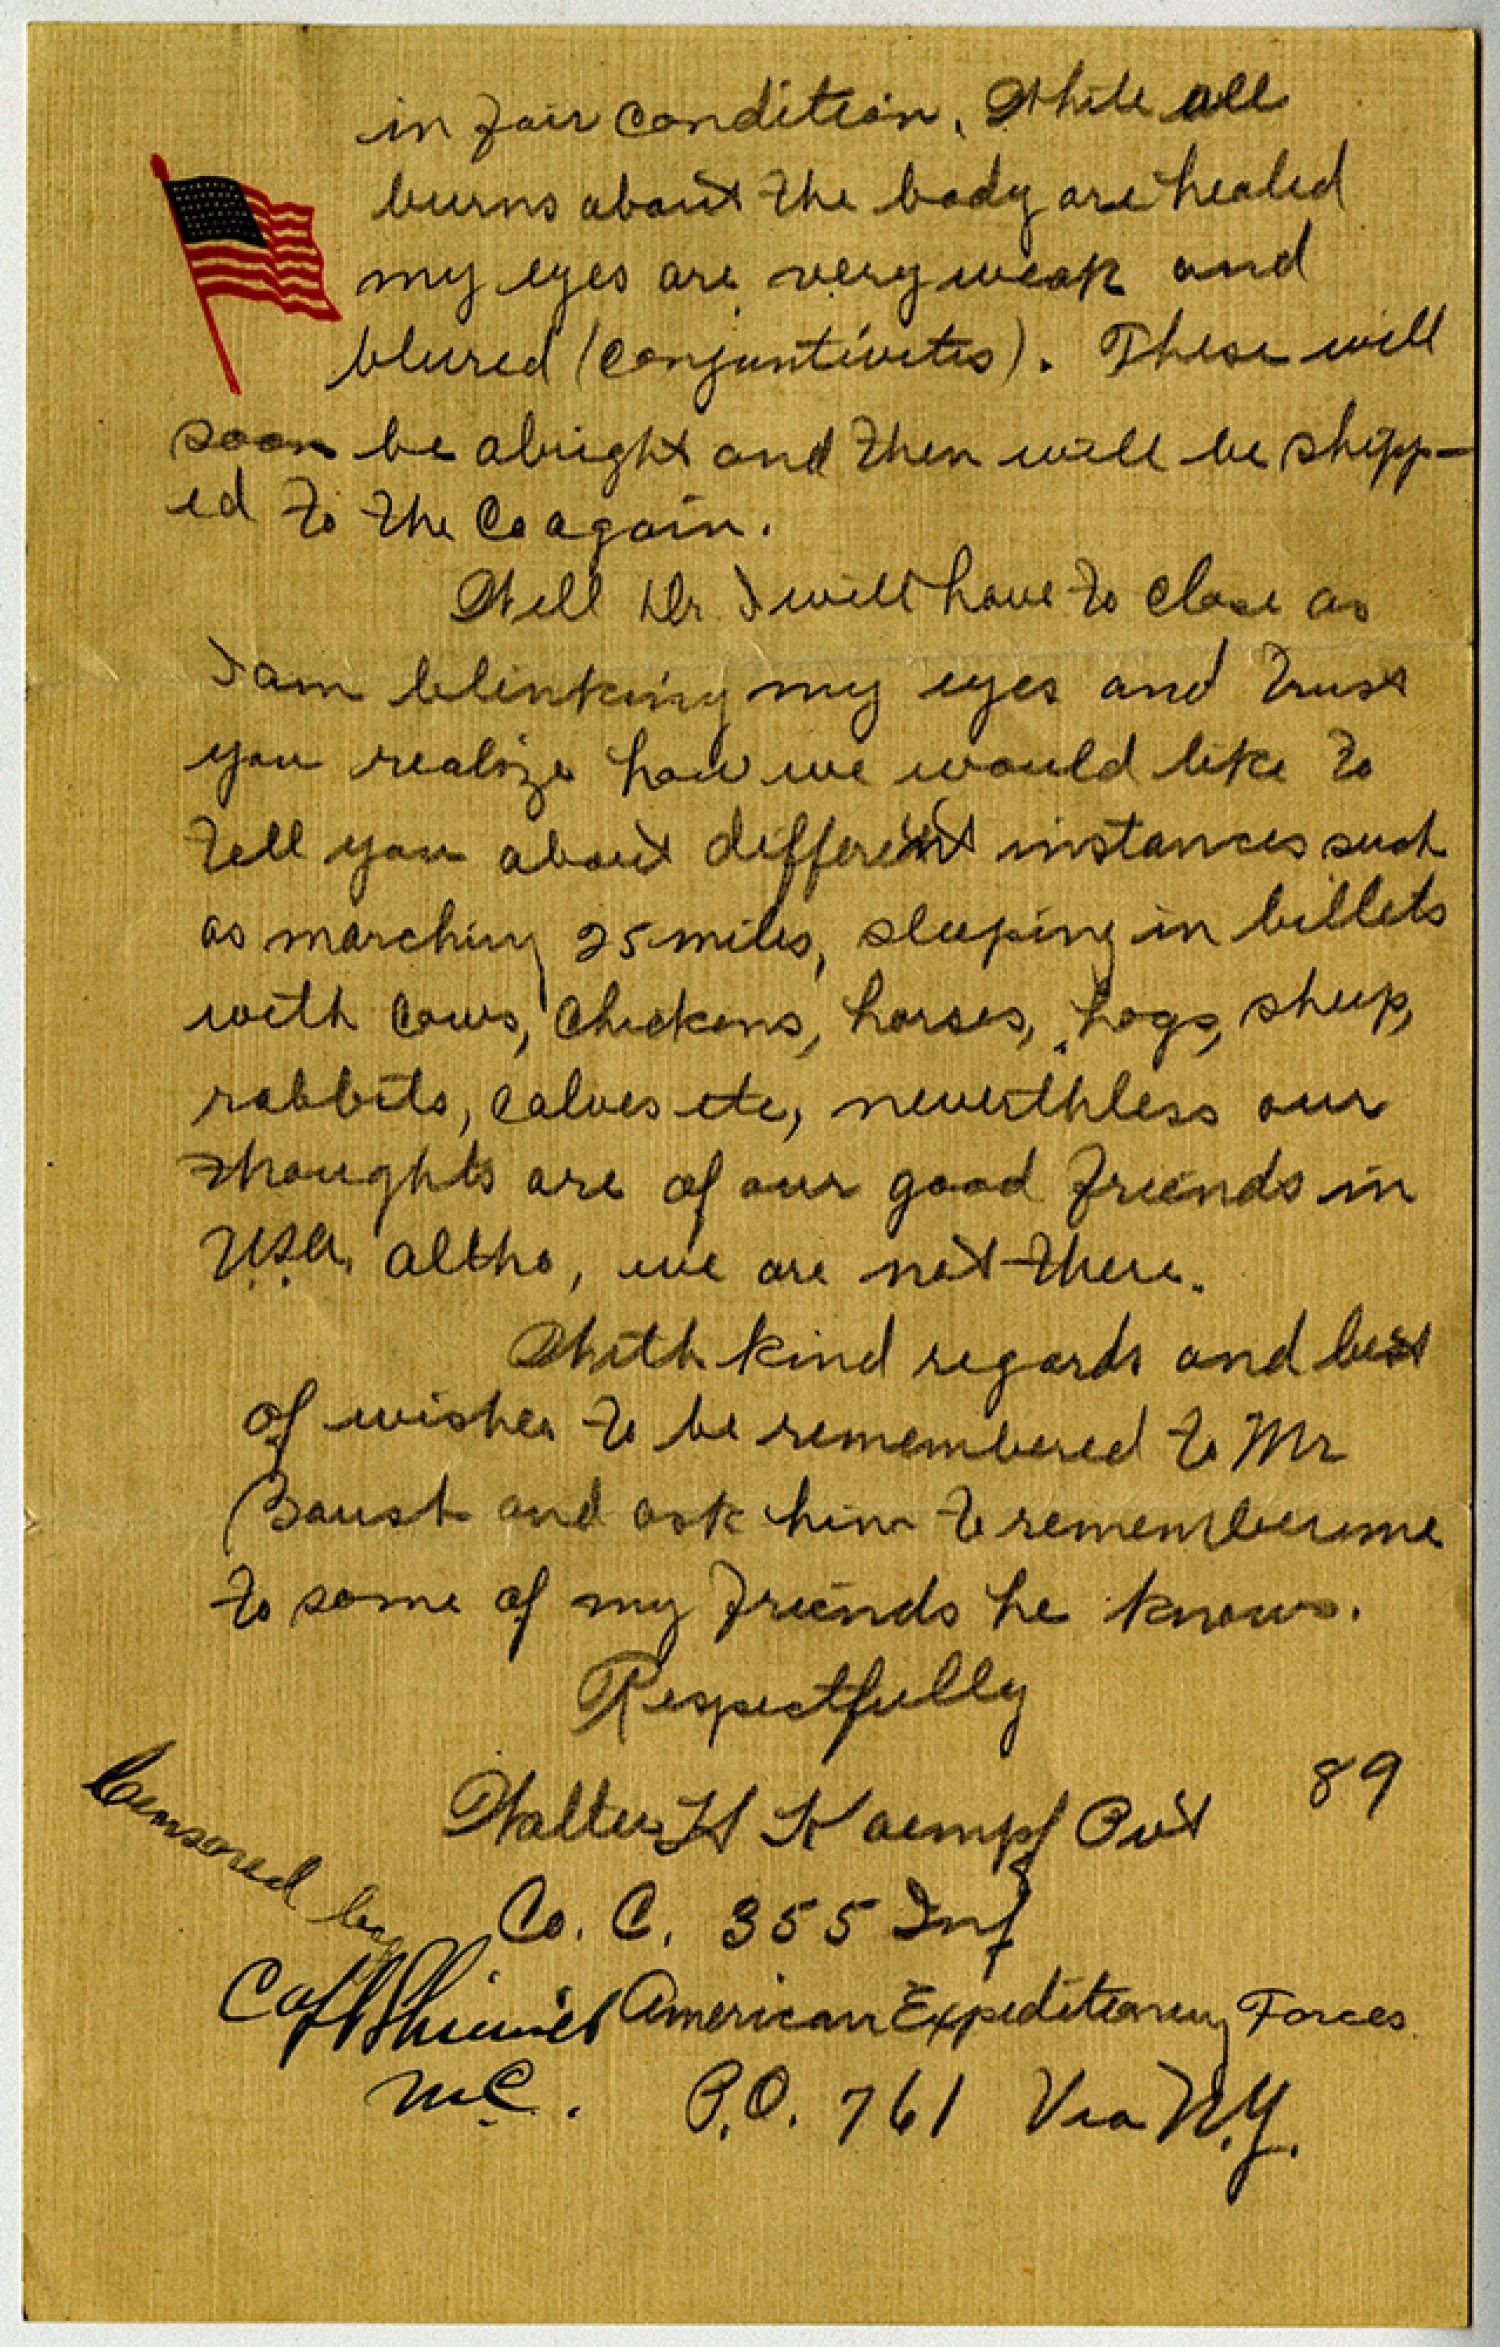 in fair condition. While all
burns about the body are healed
my eyes are very weak and
blured (conjuntivites). These will
soon be alright and then will be shipp-
ed to the Co again.
Well Dr. I will have to close as
I am blinking my eyes and trust
you realize how we would like to
tell you about different instances such
as marching 25 miles, sleeping in billets
with cows, chickens, horses, hogs, sheep,
rabbits, calves etc, neverthless our
thoughts are of our good friends in
U.S.A. altho, we are not there.
With kind regards and best
of wishes to be remembered to Mr
Baust and ask him to remember me
to some of my friends he knows.
Respectfully
Walter H Kaempf Pvt
89
Co. C. 355 Inf
American Expeditionary Forces
P.O. 761 Via N.Y.
Censored by
M.C.